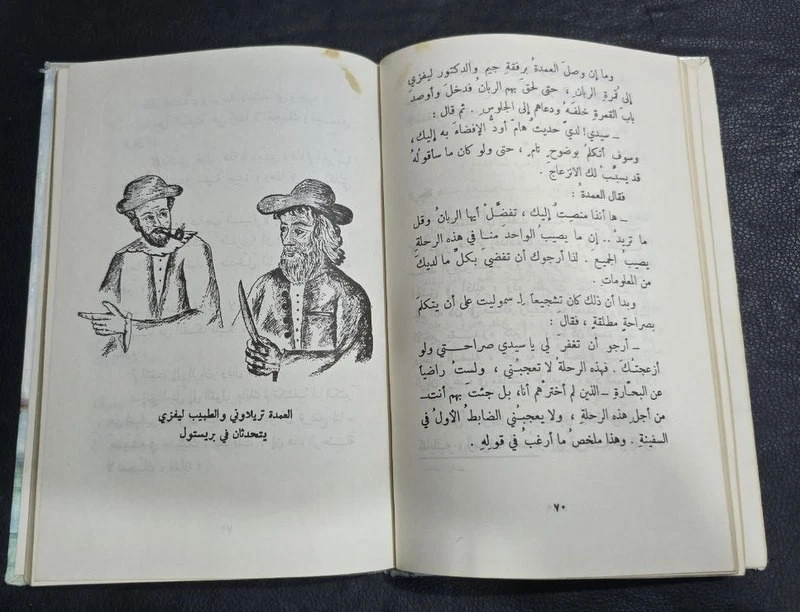 وما إن وصلَ العمدةُ برفقةِ جيم والدكتور ليفزي
إلى قُمرةِ الربان ، حتى لحقَ بهم الربان فدخلَ وأوصدَ
بابَ القمرةِ خلفَهُ ودعاهم إلى الجلوسِ . ثم قال :
ـ سيدي! لديَّ حديثٌ هامٌ أودُّ الإفضاءَ به إليك ،
وسوف أتكلمُ بوضوحٍ تامٍ ، حتى ولو كان ما سأقولُهُ
قد يسبِّبُ لك الازعاج .
فقال العمدةُ :
ـ ها أنذا منصِتٌ إليك ، تفضَّلْ أيها الربانُ وقل
ما تريدُ .. إن ما يصيبُ الواحدَ منا في هذه الرحلةِ
يصيب الجميع . لذا أرجوك أن تفضيَ بكلِّ ما لديكَ
من المعلوماتِ .
وبدا أن ذلك كان تشجيعاً لـ سموليت على أن يتكلمَ
بصراحةٍ مطلقةٍ ، فقالَ :
ـ أرجو أن تغفرَ لي يا سيدي صراحتي ولو
أزعجتُكَ . فهذه الرحلةُ لا تعجبُني ، ولستُ راضياً
عن البحّارةِ ـ الذين لم أخترْهم أنا، بل جئتَ بهم أنت ـ
من أجلِ هذه الرحلةِ ، ولا يعجبُني الضابطُ الأولُ في
السفينةِ . وهذا ملخصُ ما أرغبُ في قولِهِ .
٧٠
العمدة تريلاوني والطبيب ليفزي
يتحدثان في بريستول